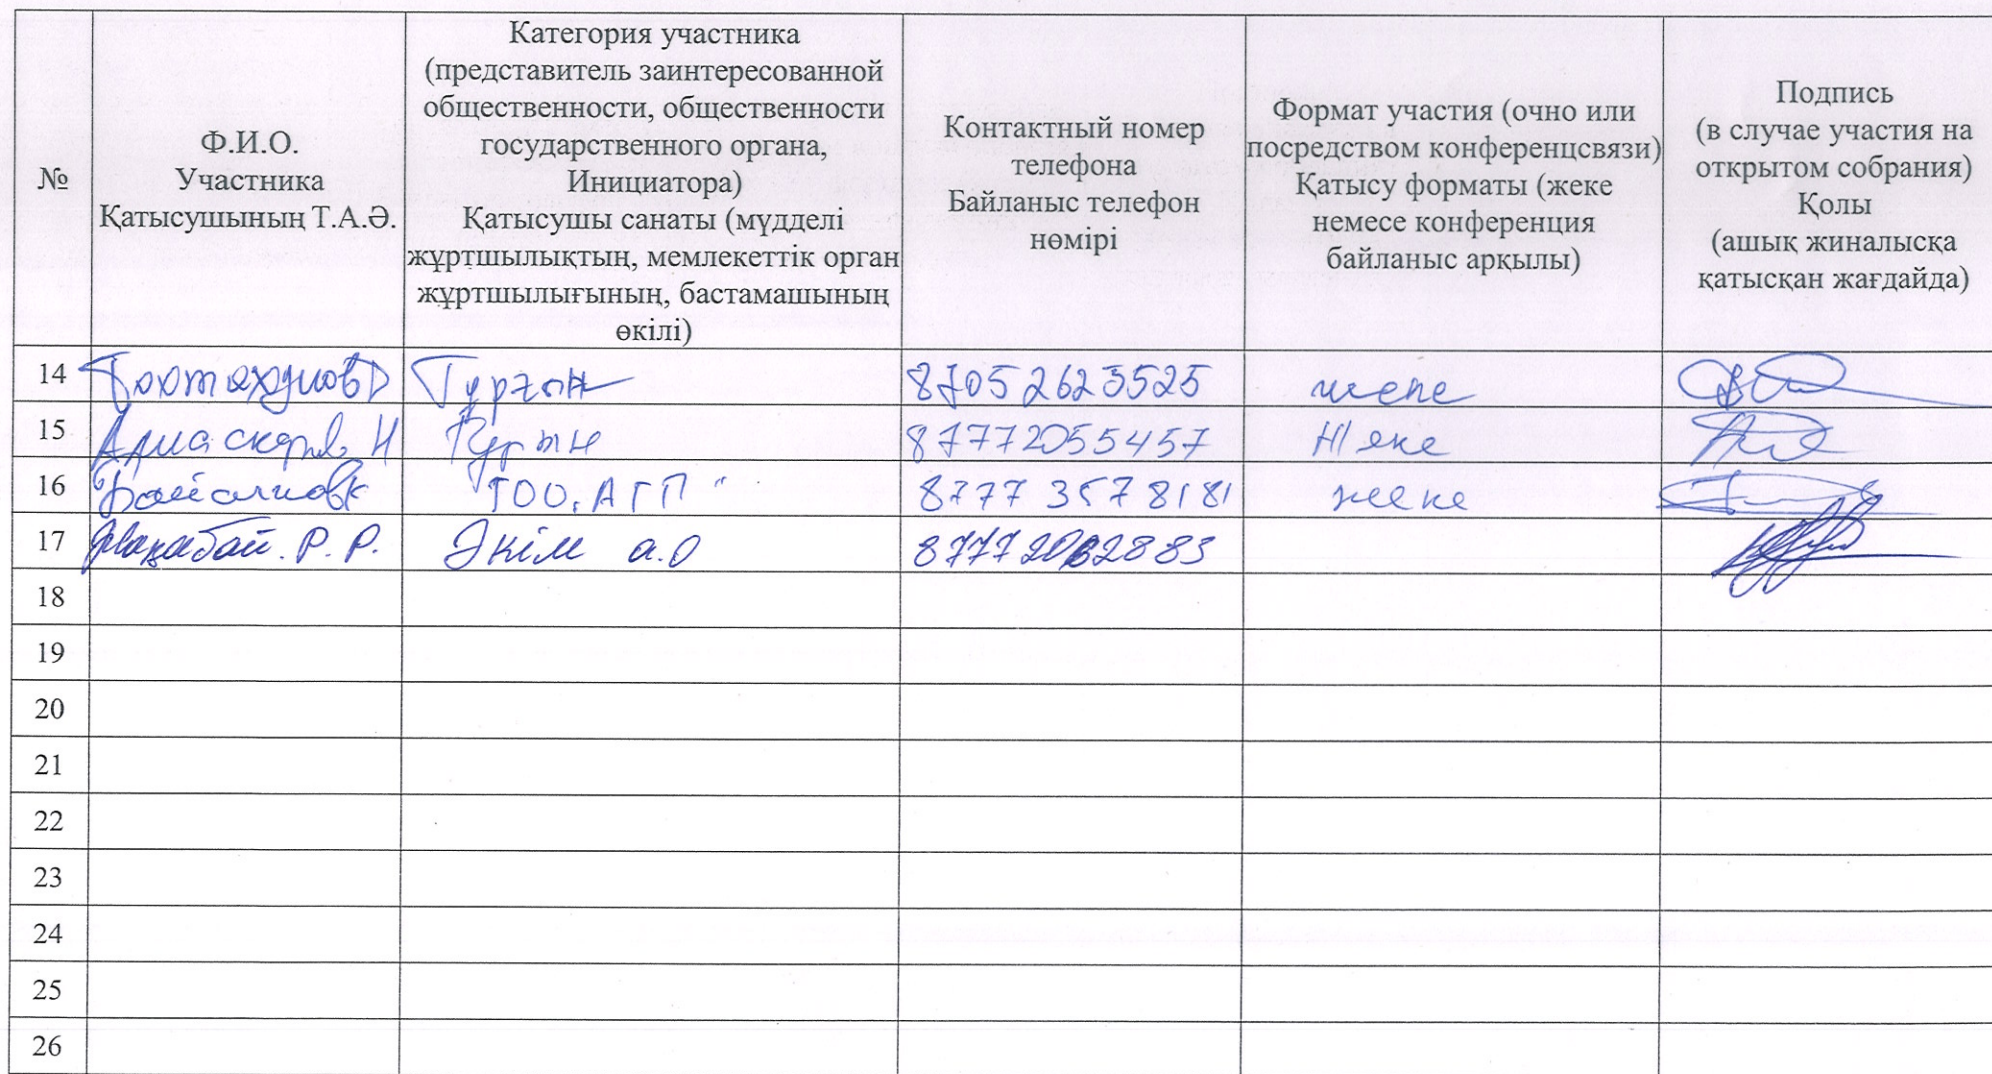 №
Ф.И.О.
Участника
Қатысушының Т.А.Ә.
Категория участника
(представитель заинтересованной
общественности, общественности
государственного органа,
Инициатора)
Қатысушы санаты (мүдделі
жұртшылықтың, мемлекеттік орган
жұртшылығының, бастамашының
өкілі)
Контактный номер
телефона
Байланыс телефон
нөмірі
Формат участия (очно или
посредством конференцсвязи)
Қатысу форматы (жеке
немесе конференция
байланыс арқылы)
Подпись
(в случае участия на
открытом собрания)
Қолы
(ашық жиналысқа
қатысқан жағдайда)
14 Тохтахунов Тұрғын 87052623525 жеке
15 Алмаскаров Н 87772055457 Жеке
16 ТОО "АГП" 87773578181 жеке
17 Р.Р. Әкім а.о
18
19
20
21
22
23
24
25
26